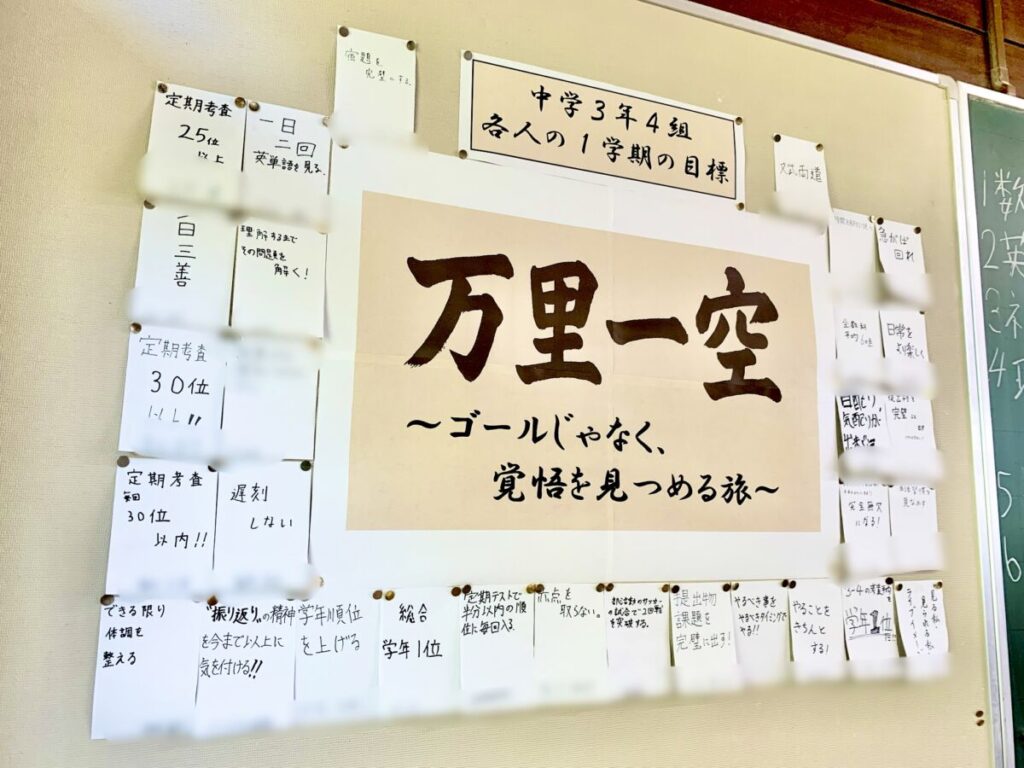 中学3年4組
各人の1学期の目標
万里一空
〜ゴールじゃなく、
覚悟を見つめる旅〜
宿題を
完璧にする
定期考査
25位
以上
一日
二回
英単語を見る
一日三善
理解するまで
その問題を
解く!
定期考査
30位
定期考査
毎回
30位
以内!!
遅刻
しない
できる限り
体調を
整える
"振り返り"の精神
を今まで以上に
気を付ける!!
学年順位
を上げる
総合
学年1位
定期テストで
半分以内の順
位に毎回入る
赤点を
取らない。
試合で2回戦
を突破する。
提出物
課題を
完璧に出す!
やるべき事を
やるべきタイミングで
やる!!
やることを
きちんと
する!
学年1位
文武両道
急がば
回れ
日常を
より楽しく
完全無欠
になる!
1数
2英
3社
4理
5
6